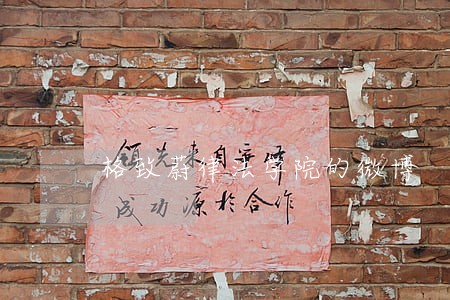 领先来自垂
格致蔚律法学院的微博
成功源於合作